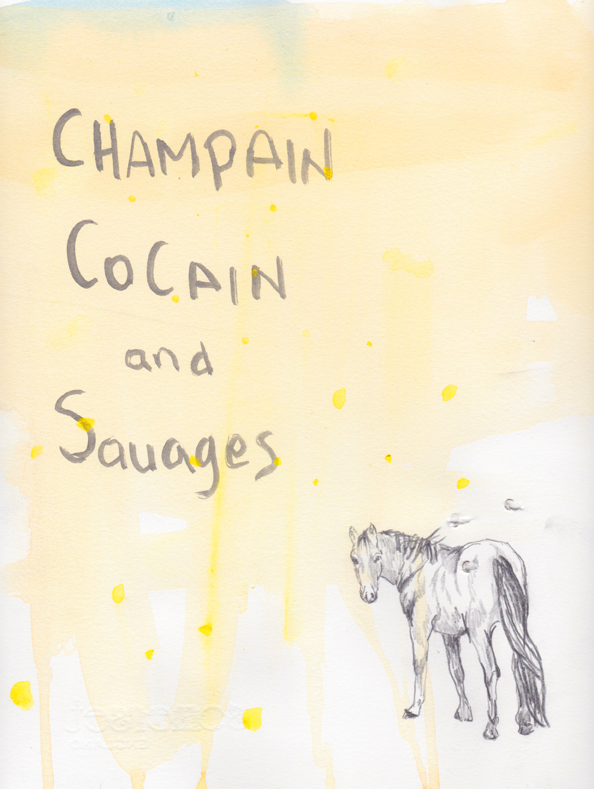 CHAMPAIN
COCAIN
and
Sauages